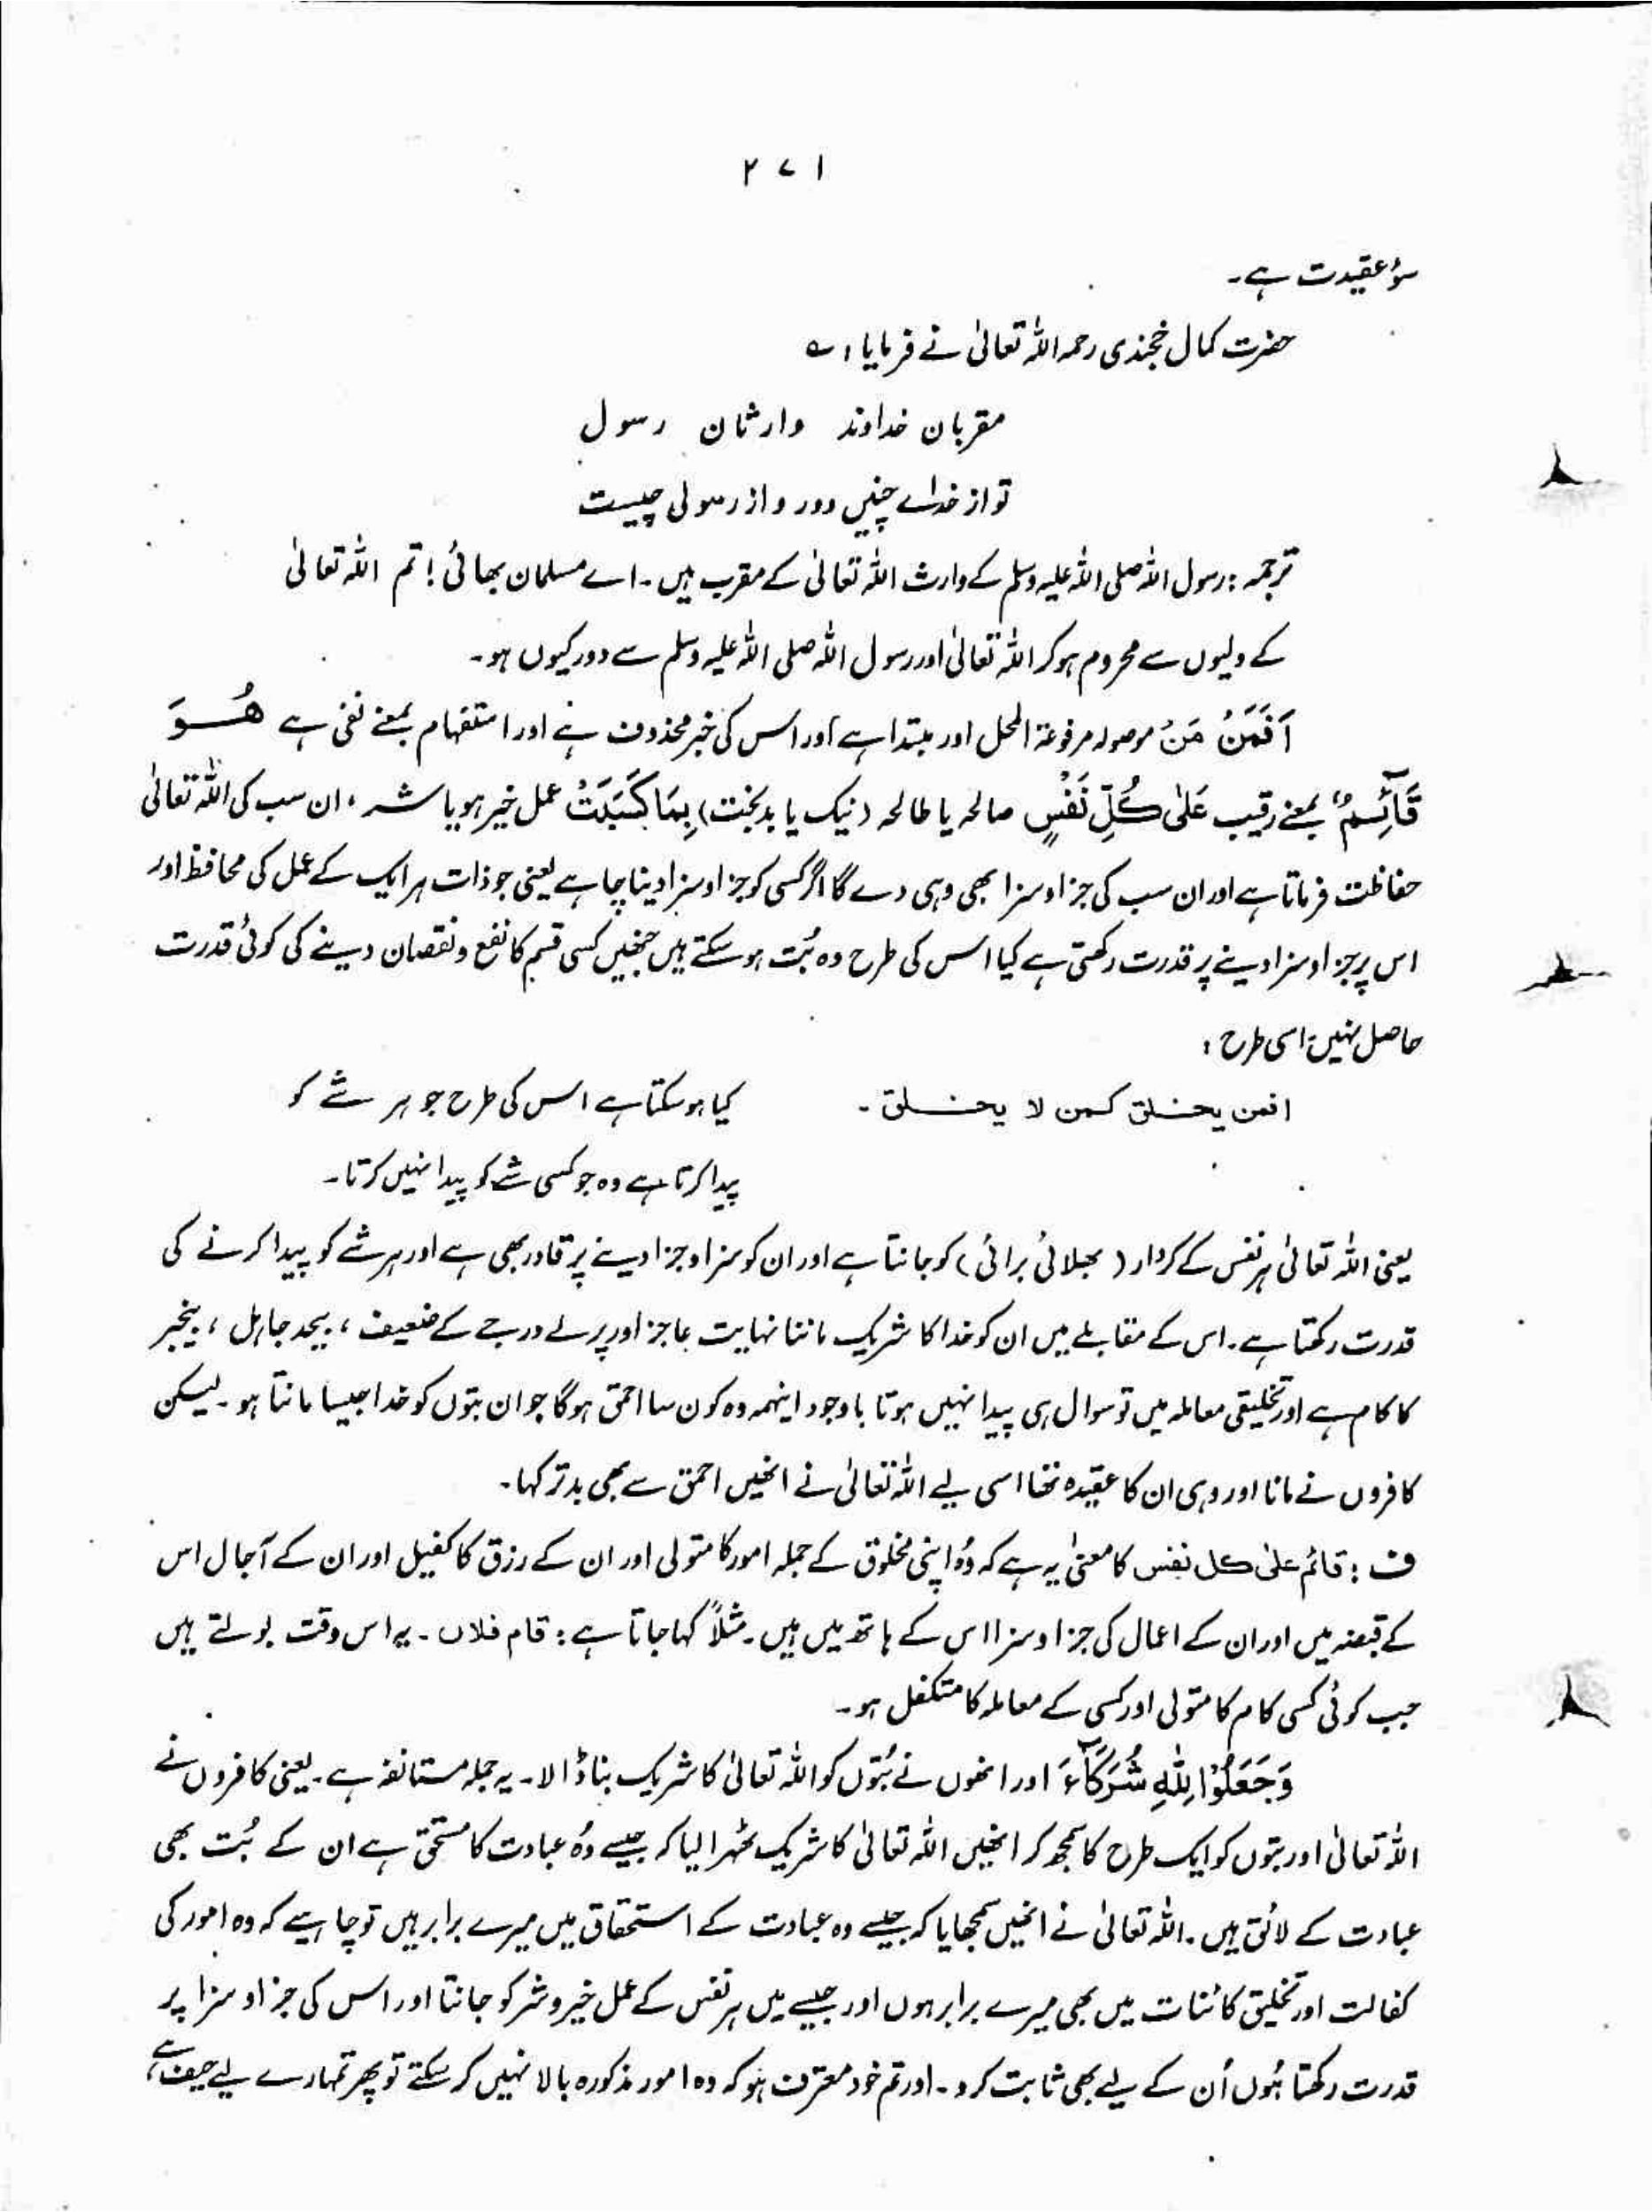 ۲۷۱
سؤ عقیدت ہے۔
حضرت کمال خجندی رحمہ اللہ تعالیٰ نے فرمایا: ؎
مقربان خداوند وارثان رسول
تو از خداے چنیں دور و از رسولی چیست
ترجمہ: رسول اللہ صلی اللہ علیہ وسلم کے وارث اللہ تعالیٰ کے مقرب ہیں۔ اے مسلمان بھائی! تم اللہ تعالیٰ
کے ولیوں سے محروم ہوکر اللہ تعالیٰ اور رسول اللہ صلی اللہ علیہ وسلم سے دور کیوں ہو۔
اَفَمَنْ مَنْ موصولہ مرفوعۃ المحل اور مبتدا ہے اور اس کی خبر محذوف ہے اور استفہام بمعنے نفی ہے هُوَ
قَآئِمٌ بمعنے رقیب عَلٰی كُلِّ نَفْسٍ صالحہ یا طالحہ (نیک یا بدبخت) بِمَا كَسَبَتْ عمل خیر ہو یا شر، ان سب کی اللہ تعالیٰ
حفاظت فرماتا ہے اور ان سب کی جزا و سزا بھی وہی دے گا اگر کسی کو جزا و سزا دینا چاہے یعنی جو ذات ہر ایک کے عمل کی محافظ اور
اس پر جزا و سزا دینے پر قدرت رکھتی ہے کیا اس کی طرح وہ بُت ہو سکتے ہیں جنھیں کسی قسم کا نفع و نقصان دینے کی کوئی قدرت
حاصل نہیں، اسی طرح:
افمن یخلق کمن لا یخلق۔ کیا ہو سکتا ہے اس کی طرح جو ہر شے کو
پیدا کرتا ہے وہ جو کسی شے کو پیدا نہیں کرتا۔
یعنی اللہ تعالیٰ ہر نفس کے کردار (بھلائی برائی) کو جانتا ہے اور ان کو سزا و جزا دینے پر قادر بھی ہے اور ہر شے کو پیدا کرنے کی
قدرت رکھتا ہے۔ اس کے مقابلے میں ان کو خدا کا شریک ماننا نہایت عاجز اور پرلے درجے کے ضعیف، بیحد جاہل، بیخبر
کا کام ہے اور تخلیقی معاملہ میں تو سوال ہی پیدا نہیں ہوتا باوجود اینہمہ وہ کون سا احمق ہوگا جو ان بتوں کو خدا جیسا مانتا ہو۔ لیکن
کافروں نے مانا اور وہی ان کا عقیدہ تھا اسی لیے اللہ تعالیٰ نے انھیں احمق سے بھی بدتر کہا۔
ف: قائم علیٰ کل نفس کا معنیٰ یہ ہے کہ وُہ اپنی مخلوق کے جملہ امور کا متولی اور ان کے رزق کا کفیل اور ان کے آجال اس
کے قبضہ میں اور ان کے اعمال کی جزا و سزا اس کے ہاتھ میں ہیں۔ مثلاً کہا جاتا ہے: قام فلاں۔ یہ اس وقت بولتے ہیں
جب کوئی کسی کام کا متولی اور کسی کے معاملہ کا متکفل ہو۔
وَجَعَلُوْا لِلّٰهِ شُرَكَآءَ اور انھوں نے بُتوں کو اللہ تعالیٰ کا شریک بنا ڈالا۔ یہ جملہ مستانفہ ہے۔ یعنی کافروں نے
اللہ تعالیٰ اور بتوں کو ایک طرح کا سمجھ کر انھیں اللہ تعالیٰ کا شریک ٹھہرا لیا کہ جیسے وُہ عبادت کا مستحق ہے ان کے بُت بھی
عبادت کے لائق ہیں۔ اللہ تعالیٰ نے انھیں سمجھایا کہ جیسے وہ عبادت کے استحقاق میں میرے برابر ہیں تو چاہیے کہ وہ امور کی
کفالت اور تخلیق کائنات میں بھی میرے برابر ہوں اور جیسے میں ہر نفس کے عمل خیر و شر کو جانتا اور اس کی جزا و سزا پر
قدرت رکھتا ہُوں اُن کے لیے بھی ثابت کرو۔ اور تم خود معترف ہو کہ وہ امور مذکورہ بالا نہیں کر سکتے تو پھر تمہارے لیے حیف ہے،